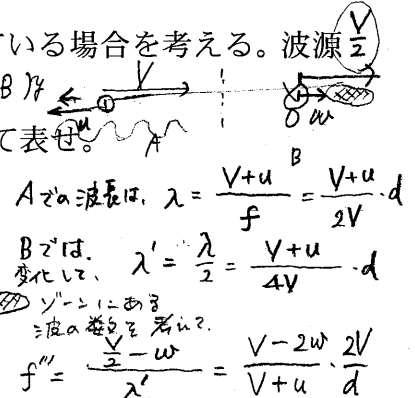 ている場合を考える。波源 V/2
B
V
u
①
A
O w
て表せ。
B
Aでの波長は、 λ = (V+u)/f = (V+u)/2V · d
Bでは、
変化して、 λ' = λ/2 = (V+u)/4V · d
ゾーンにある
波の数を考えて、
f''' = (V/2 - w)/λ' = (V-2w)/(V+u) · 2V/d